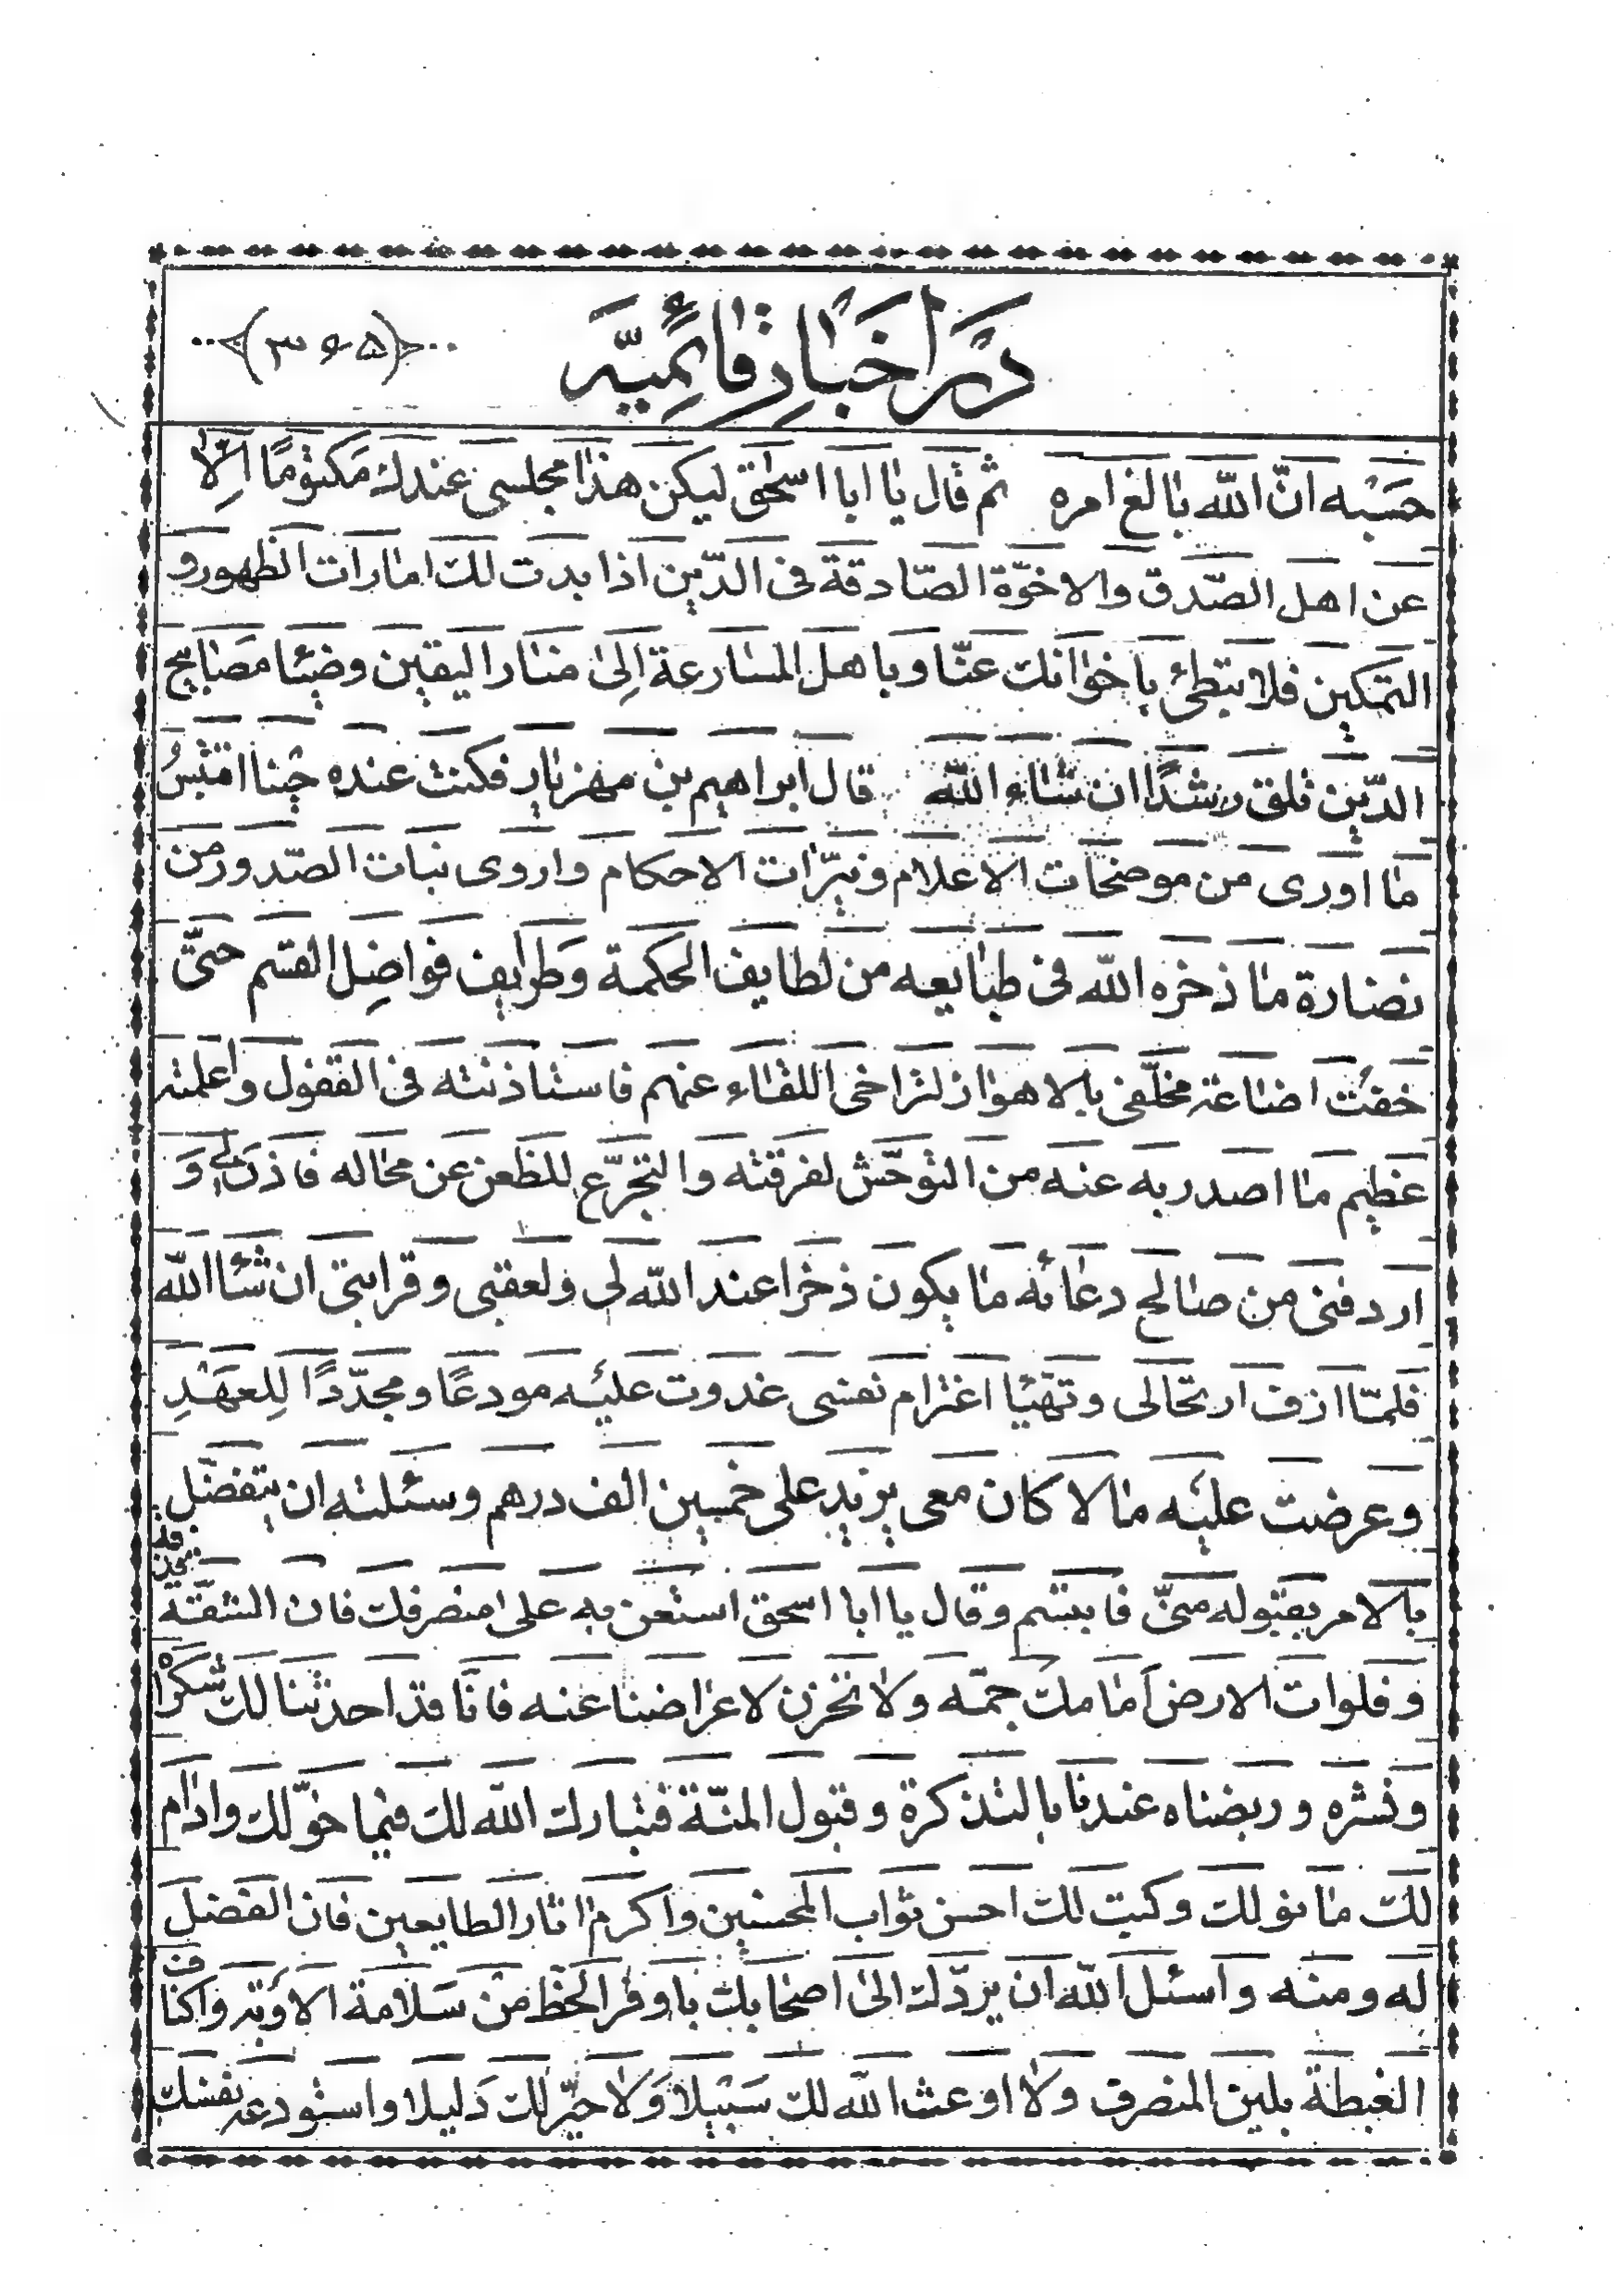 در اخبار قائمیّه
(۳۶۵)
حَسْبه انّ اللّه بالغ امره ثم قال یا ابا اسحٰق لیکن هذا مجلسی عندك مَکتومًا اِلّا
عن اهل الصّدق والاخوّة الصّادقة فی الدّین اذا بدت لك امارات الظهور و
التمکین فلا تبطئ باخوانك عنّا وباهل المسارعة اِلیٰ منار الیقین وضیٓا مصَابیح
الدّین تلق رشدًا ان شاء اللّه قال ابراهیم بن مهزیار فکنت عنده حینا اقتبسُ
ما اوری من موضحات الاعلام ونیّرات الاحکام واروی نبات الصّدور من
نضارة ما ذخره اللّه فی طبایعه من لطایف الحکمة وَطرایف فواضِل القسم حتّی
خفتُ اضاعة مخلّفی بالاهواز لتراخی اللقاء عنهم فاستاذنته فی القفول واعلمته
عظیم ما اصدر به عنه من التوحّش لفرقته والتجرّع للظعن عن محاله فاذن لی وَ
اردفنی من صالح دعائه ما یکون ذخرا عند اللّه لی ولعقبی وقرابتی ان شٓا اللّه
فلمّا ازف ارتحالی وتهیّا اعتزام نفسی غدوت علیه مودعًا ومجدّدًا لِلعهَدِ
وعرضت علیه مالا کان معی یزید علی خمسین الف درهم وسئلته ان یتفضّل
بالامر بقبوله منّی فابتسم وقال یا ابا اسحق استعن به علیٰ منصرفك فان الشقّة
وفلوات الارض اَمامك جمّه ولا تحزن لاعراضنا عنه فانّا قد احدثنا لك شکرْا
ونشره وربضناه عندنا بالتذکرة وقبول المنّة فتبارك اللّه لك فیما خوّلك وادٰام
لك ما نولك وکتب لك احسن ثواب المحسنین واکرم اثار الطایعین فان الفضل
له ومنه واسئل اللّه ان یردّك الیٰ اصحابك باوفر الحظ من سَلامة الاوبة واکناف
الغبطة بلین المنصرف ولا اوعث اللّه لك سَبیلا وَلا حیّر لك دَلیلا واستودعه نفسك